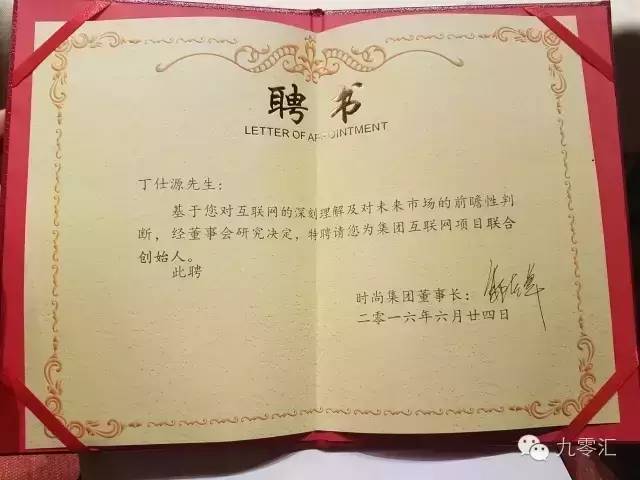 聘书
LETTER OF APPOINTMENT
丁仕源先生：
基于您对互联网的深刻理解及对未来市场的前瞻性判
断，经董事会研究决定，特聘请您为集团互联网项目联合
创始人。
此聘
时尚集团董事长：
二零一六年六月廿四日
九零汇